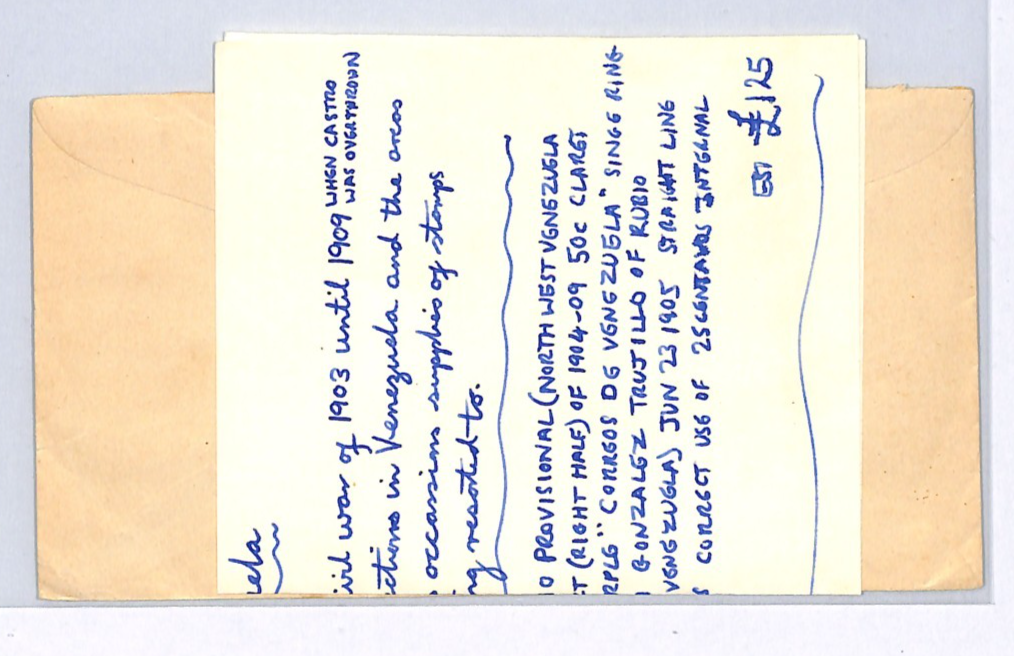 ela
ivil war of 1903 until 1909 WHEN CASTRO
WAS OVERTHROWN
ctions in Venezuela and the areas
occassions supplies of stamps
ng resorted to.
O PROVISIONAL (NORTH WEST VENEZUELA
T (RIGHT HALF) OF 1904-09 50c CLARET
RPLE "CORREOS DE VENEZUELA" SINGE RING
GONZALEZ TRUJILLO OF RUBIO
VENEZUELA) JUN 23 1905 STRAIGHT LINE
S CORRECT USE OF 25CENTAVOS INTERNAL
EST £125